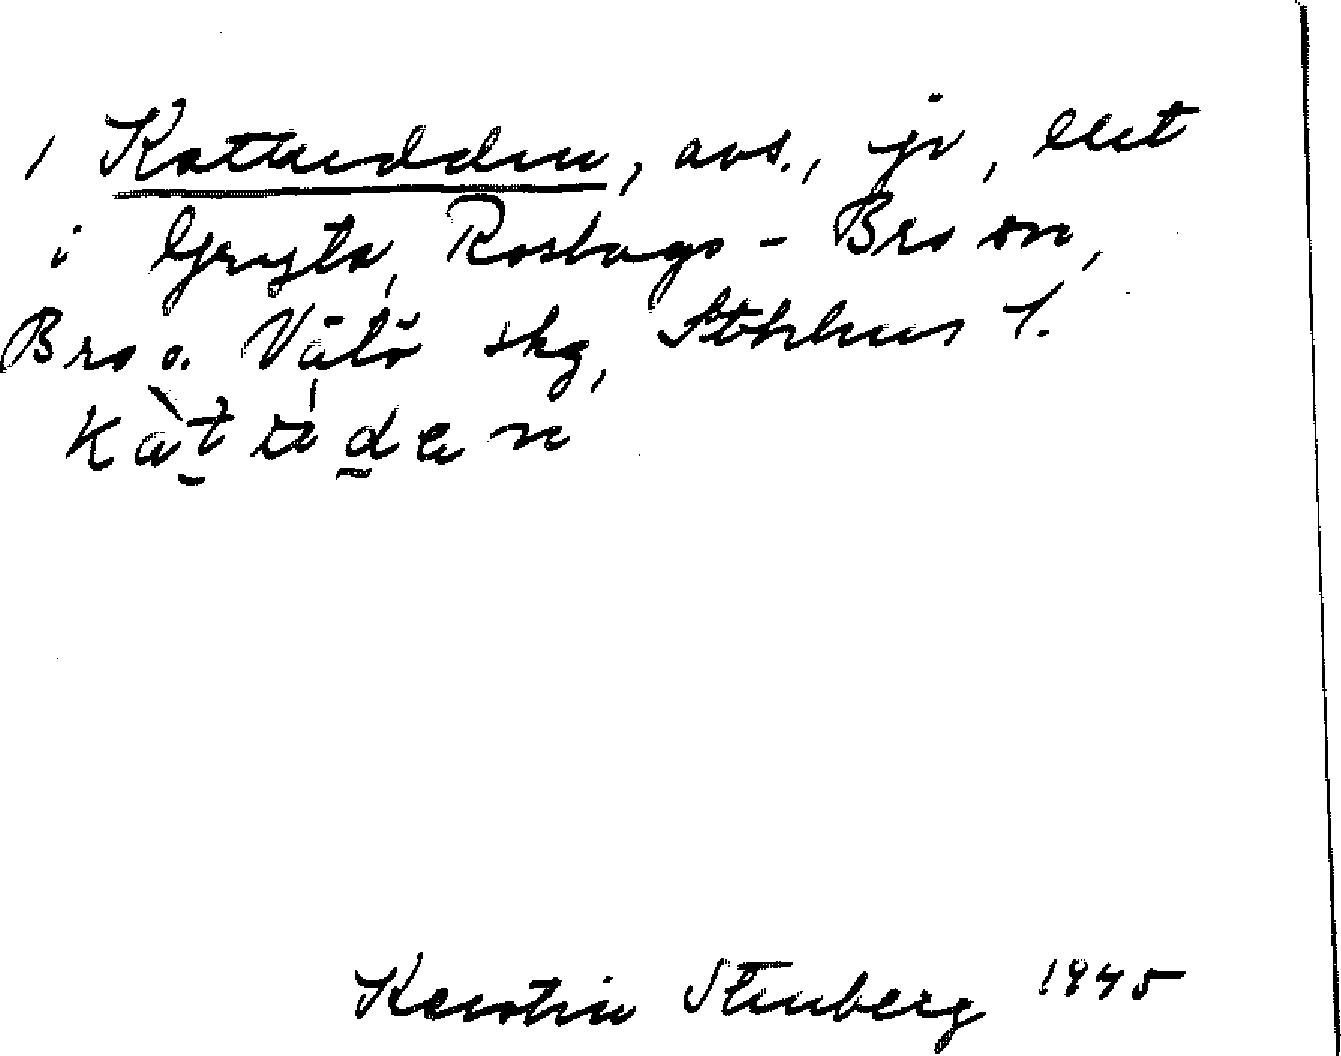 1 Kattudden, avs., jv, lht
i Gryta, Roslags-Bro sn,
Bro o. Vätö skg, Sthlms l.
kàtúdan
Kerstin Stenberg 1945